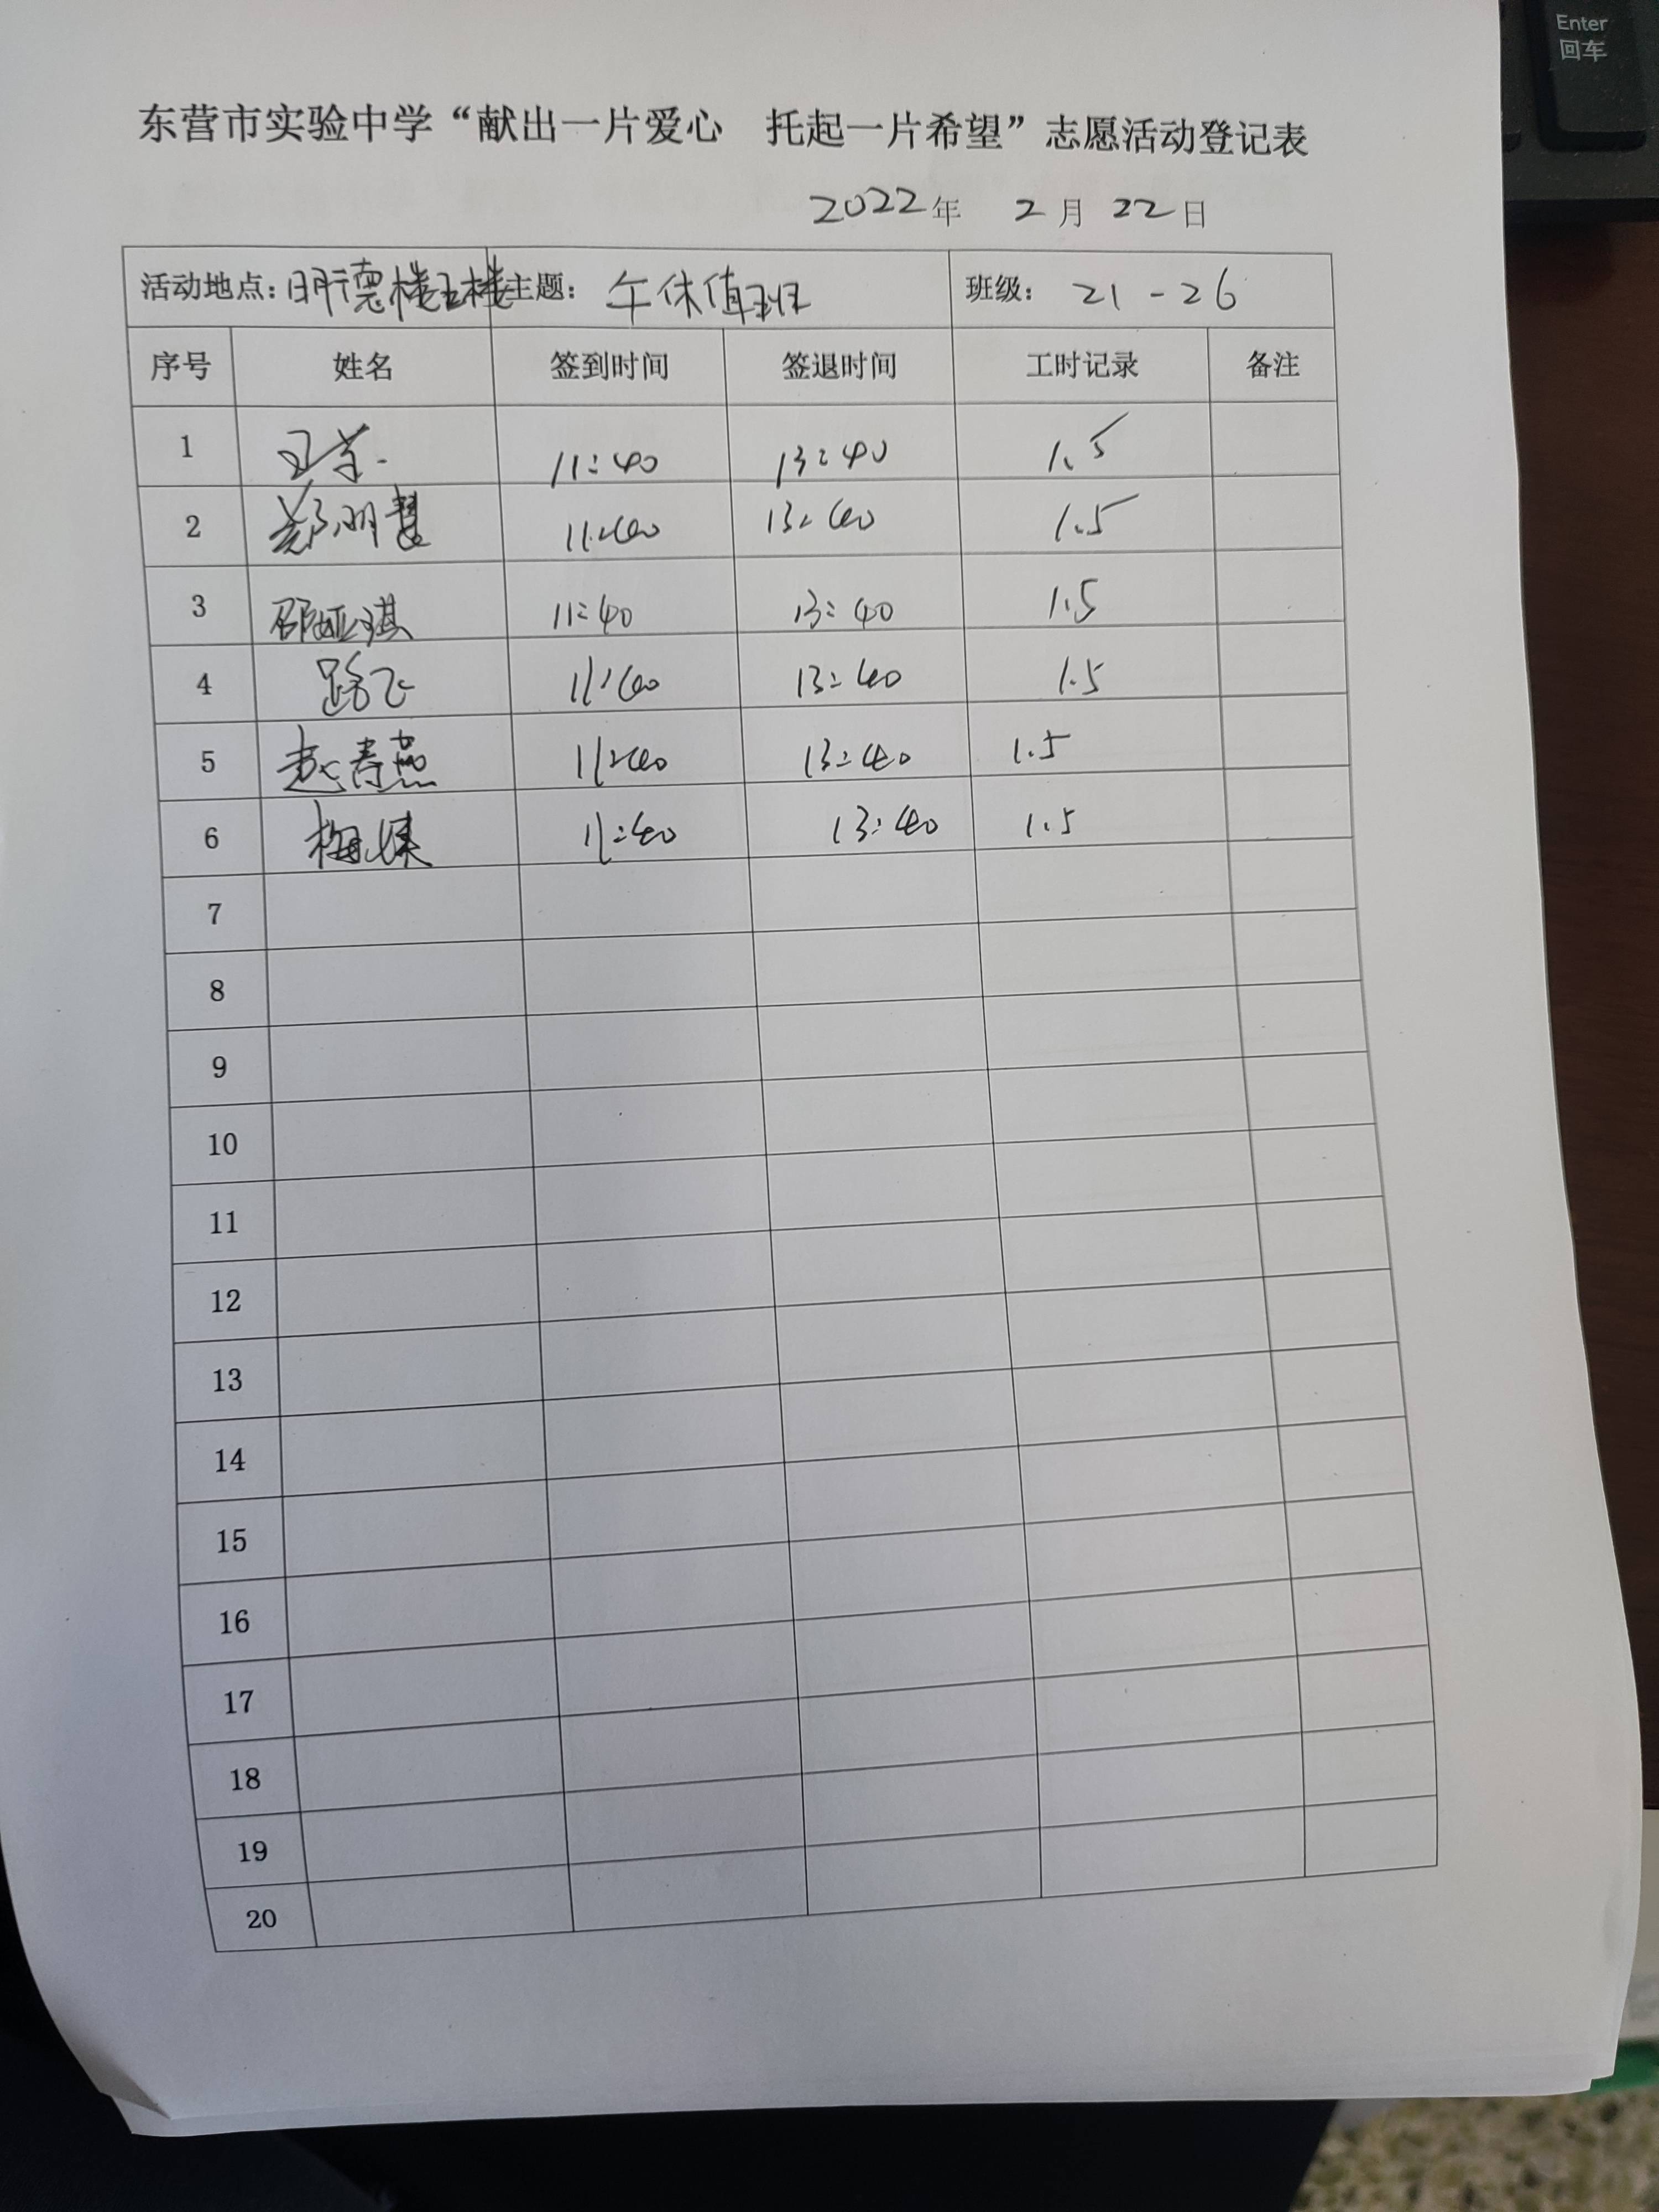 Enter
回车
东营市实验中学“献出一片爱心 托起一片希望”志愿活动登记表
2022年 2月 22日
活动地点：明德楼五楼 主题：午休值班 班级：21-26
序号 姓名 签到时间 签退时间 工时记录 备注
1 11:40 13:40 1.5
2 郑明慧 11:40 13:40 1.5
3 邵娅琪 11:40 13:40 1.5
4 路飞 11:40 13:40 1.5
5 赵春燕 11:40 13:40 1.5
6 11:40 13:40 1.5
7
8
9
10
11
12
13
14
15
16
17
18
19
20